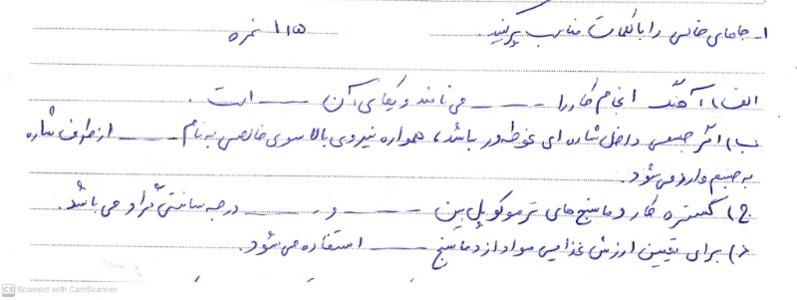 ۱- جاهای خالی را با کلمات مناسب پر کنید. ۱/۵ نمره
الف) آهنگ انجام کار را ــــــ می نامند و یکای آن ــــــ است.
ب) اگر جسمی داخل شاره ای غوطه ور باشد، همواره نیروی بالا سوی خالصی به نام ــــــ از طرف شاره
به جسم وارد می شود.
ج) گستره کار دماسنج های ترموکوپل بین ــــــ و ــــــ درجه سانتی گراد می باشد.
د) برای تعیین ارزش غذایی مواد از دماسنج ــــــ استفاده می شود.
CS Scanned with CamScanner